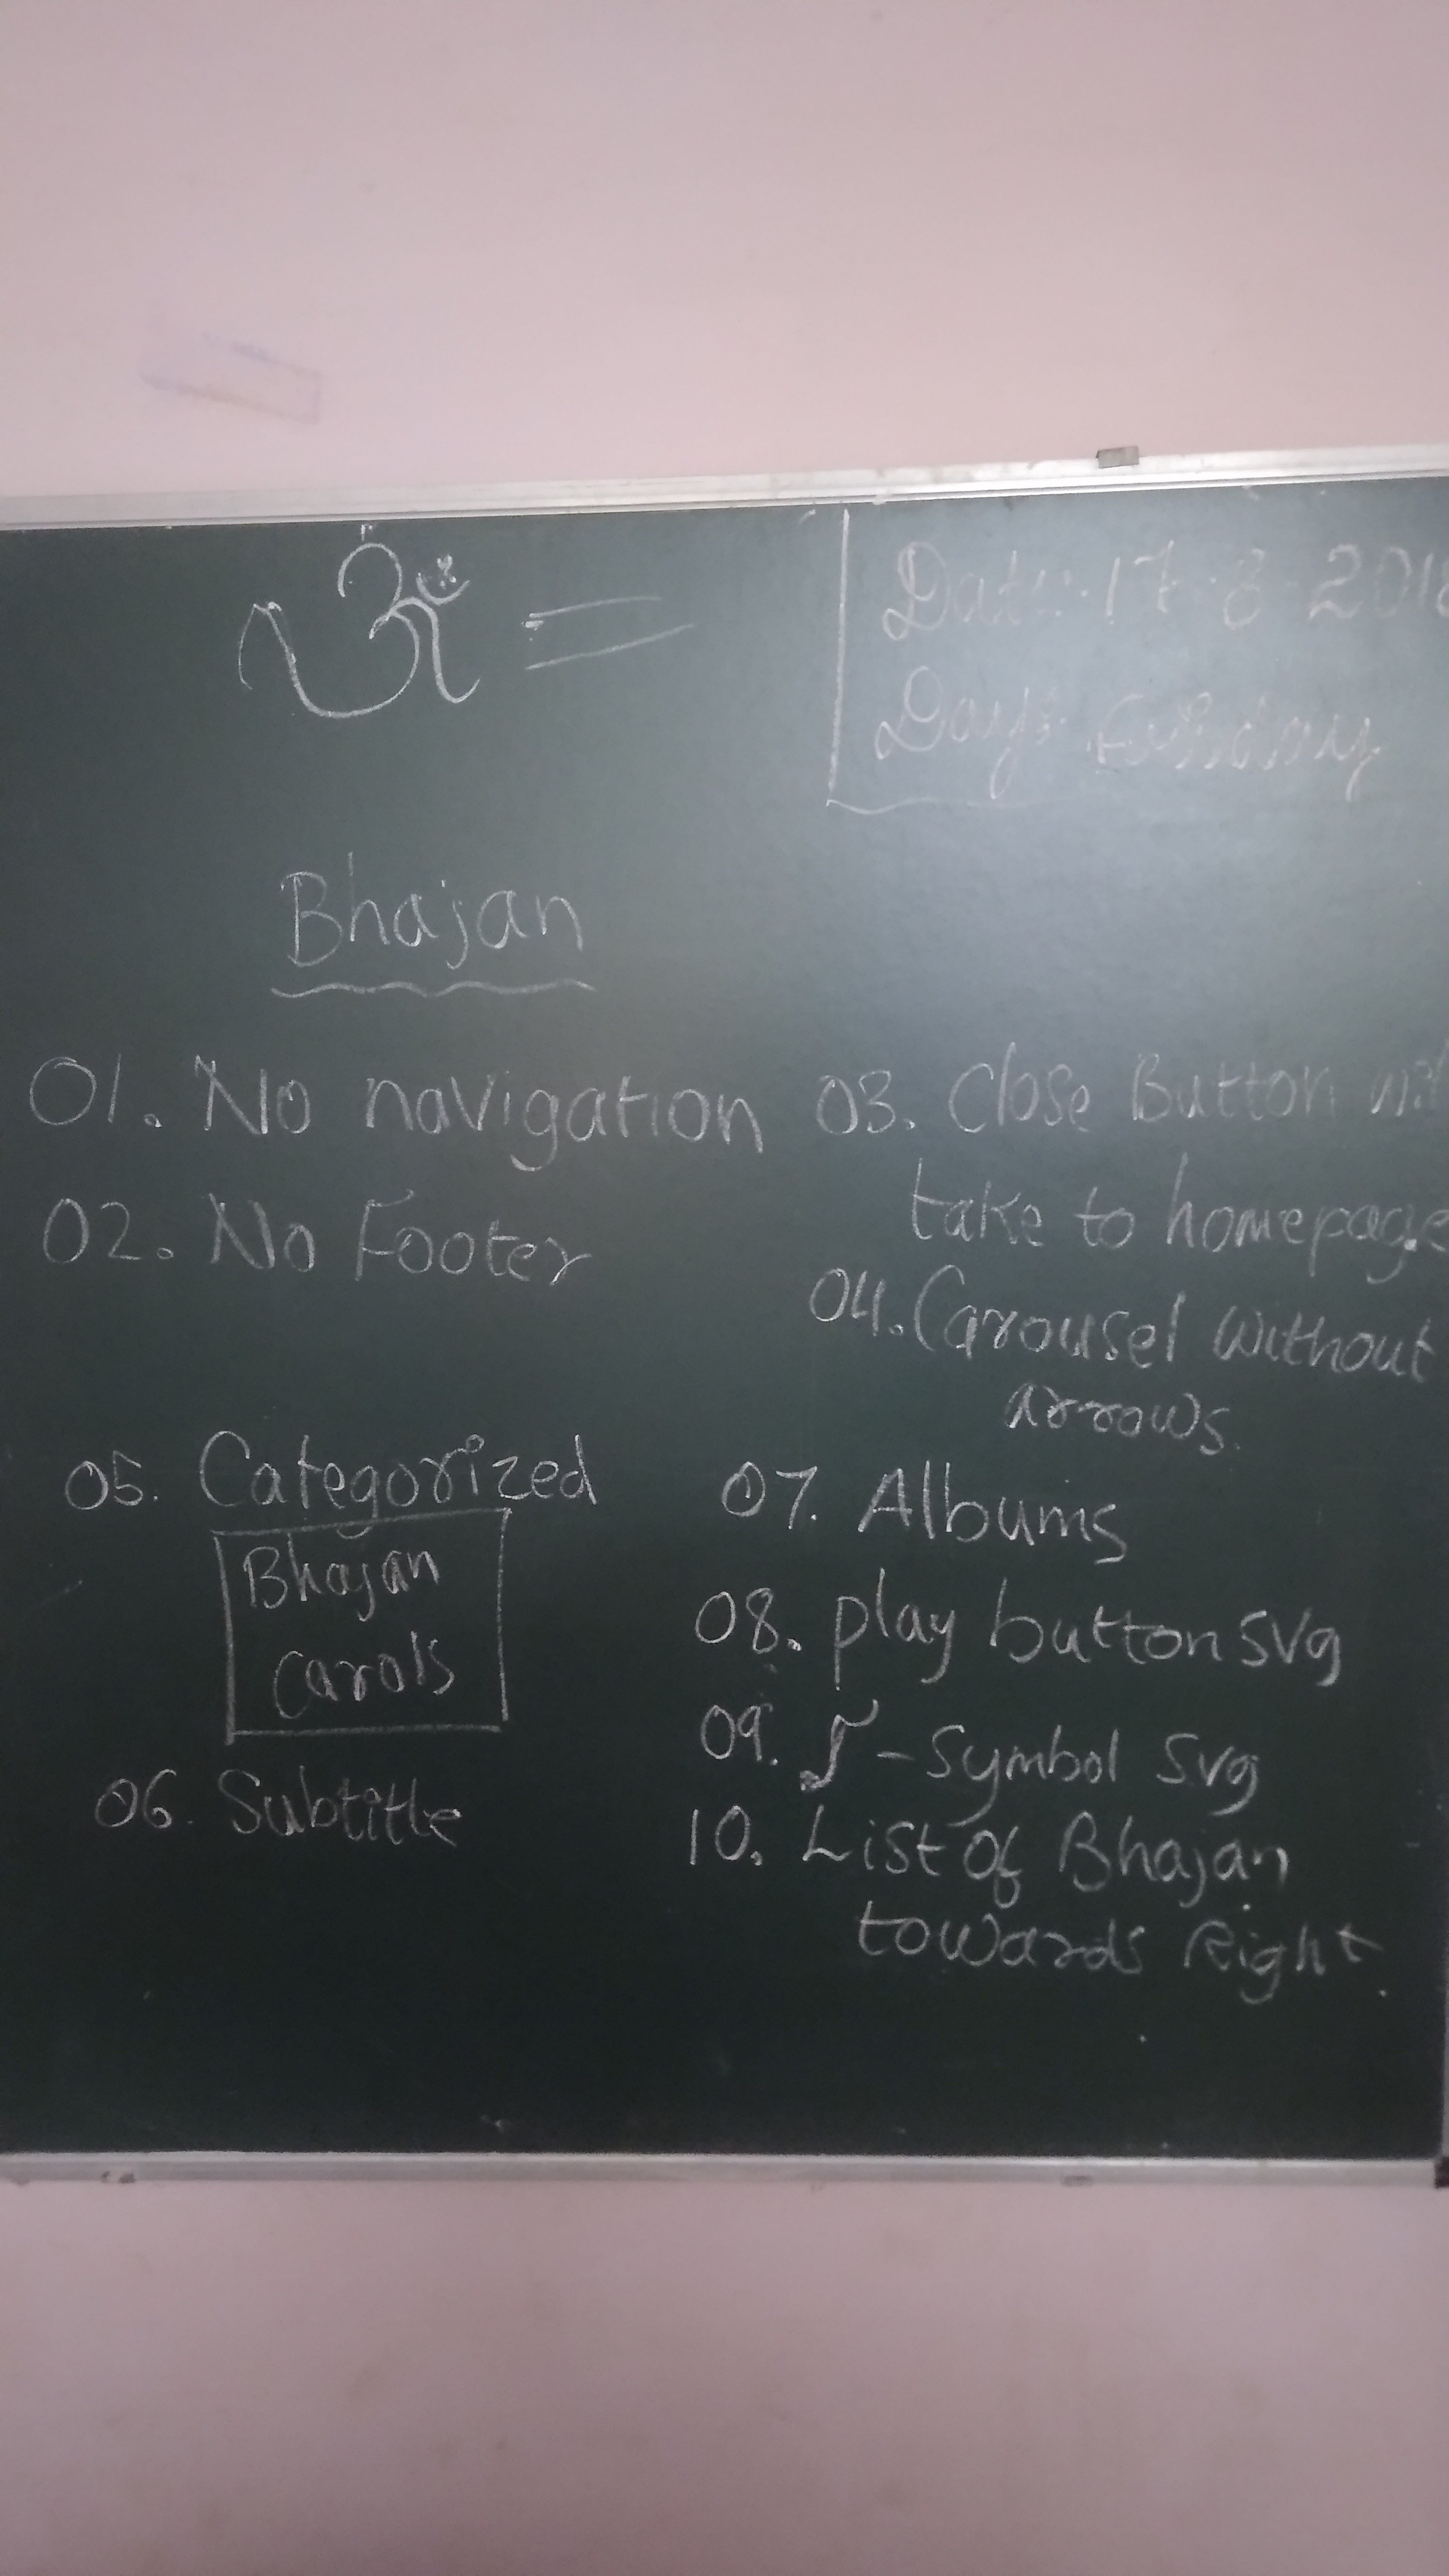 ॐ =
Date: 17-8-2018
Day: Friday
Bhajan
01. No navigation
02. No Footer
03. Close Button will
take to homepage
04. Carousel without
arrows.
05. Categorized
Bhajan
carols
06. Subtitle
07. Albums
08. play button svg
09. ♪ - Symbol svg
10. List of Bhajan
towards Right.